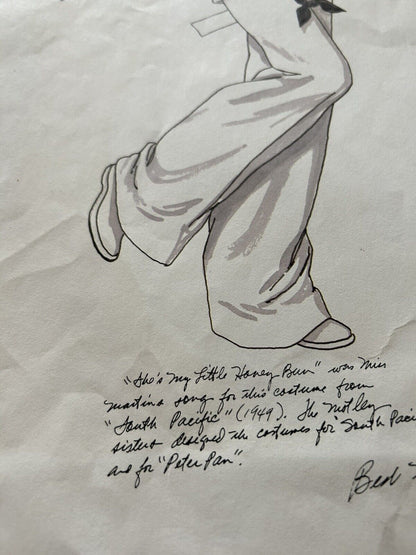 "She's My Little Honey Bun" was Miss
Martins song for this costume from
"South Pacific" (1949). The Motley
sisters designed the costumes for "South Paci
and for "Peter Pan".